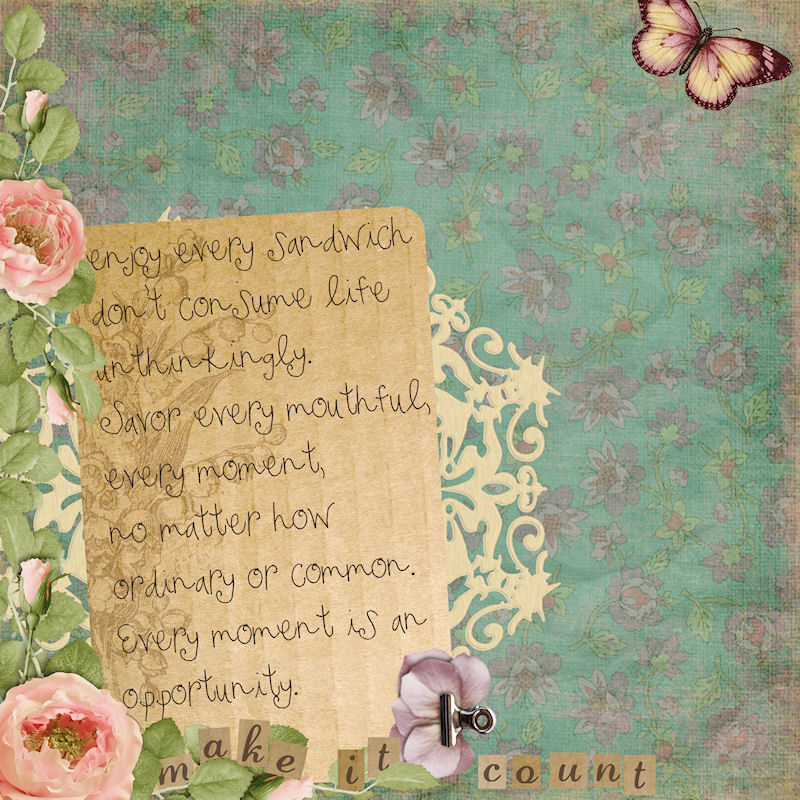 enjoy every sandwich
don't consume life
unthinkingly.
Savor every mouthful,
every moment,
no matter how
ordinary or common.
Every moment is an
opportunity.
make it count